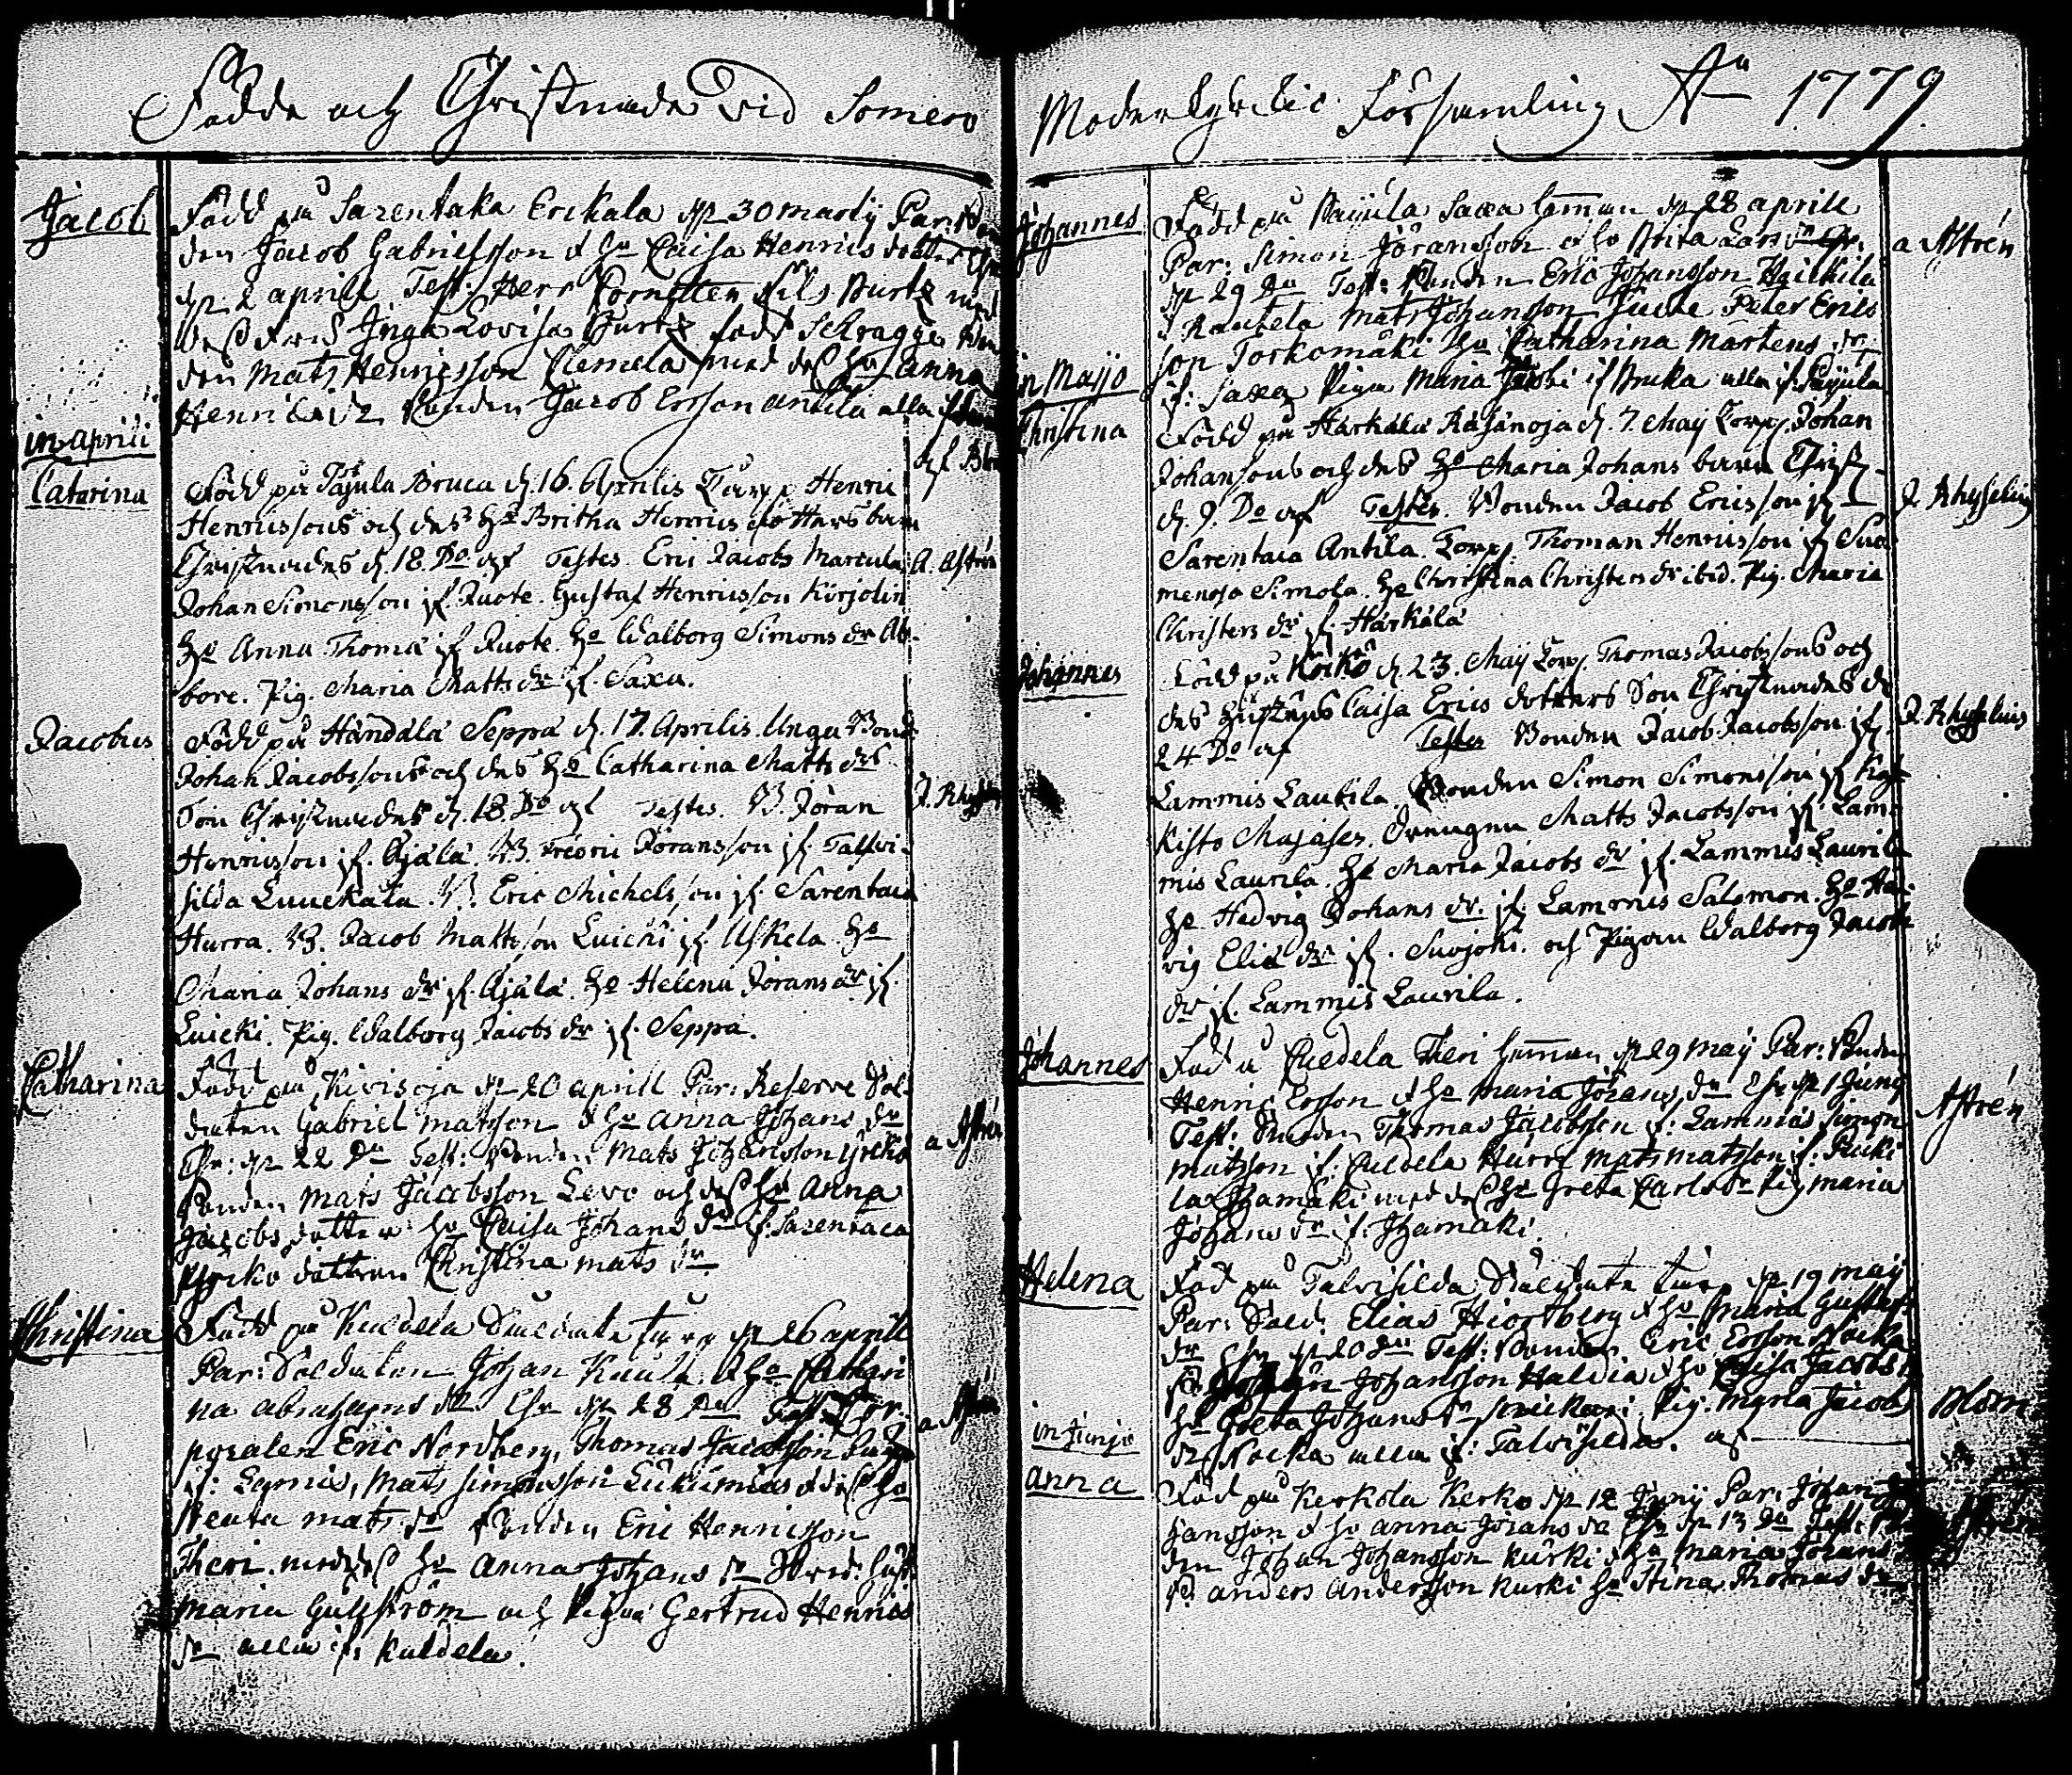 Födde och Christnade vid Somero
Jacob
Född på Sarentaka Erckala d 30 martij Par: Bon
den Jacob Gabrielsson & ho Caisa Henrics dotter Chr
d 2 aprill Test: Herr Cornetten Nils Burtz med
dess Fru Inga Lovisa Burtz född Schragge Bon
den Mats Henricsson Clemela med dess ho Anna
Henrics dr Bonden Jacob Ersson Antila alla if
in aprili
Catarina
Född på Pajula Bruca d. 16. Aprilis Torp. Henric
Henricssons och des Ho Britha Henrics dotters barn
Christnades d. 18. Do af Testes. Eric Jacobs Marcula
A. Astrén
Johan Simonsson if. Ruote. Gustaf Henricsson Kirjolin
Ho Anna Thoma if Ruote. Ho Walborg Simons dr Ab-
bore. Pig. Maria Matts dr if. Saxa.
Jacobus
Född på Håndala Seppä d. 17. Aprilis Unga Bond.
Johan Jacobssons och des Ho Catharina Matts drs
Son Christnades d. 18. Do af Testes. B. Jöran
Henricsson if. Ajala. B. Fredric Jöransson if. Talfvi-
silda Luuckala. B. Eric Michelsson if. Sarentaca
Hurra. B. Jacob Mattsson Luicki if. Uskela. Ho
Maria Johans dr if Ajala. Ho Helena Jörans dr if.
Luicki. Pig. Walborg Jacobs dr if. Seppä.
Catharina
Född på Kivisoja d 20 aprill Par: Reserve Sol-
daten Gabriel Matsson & ho Anna Johans dr
Chr: d 22 do Test: Bonden Mats Johansson Yrckö
a Astrén
Bonden Mats Jacobsson Levo och dess ho Anna
Jacobs dotter ho Caisa Johans dr if: Sarentaca
Yrcko dottren Christina Mats dr
Christina
Född på Kuldela Soldate torp d 26 aprill
Par: Soldaten Johan Kuula & ho Cathari
na Abrahams dr Chr d 28 do Test: Cor-
a Astrén
poralen Eric Nordberg, Thomas Jacobsson
if: Lamis, Mats Simonsson Lukumies & dess ho
Beata Mats dr Bonden Eric Henricsson
Theri med dess ho Anna Johans dr
Maria Gullström och Pigan Gertrud Henrics
dr alla if: Kuldela.
Moderkyrkio Församling Ao 1779
Johannes
Född på Pajula Saxa hemman d 28 aprill
Par: Simon Jöransson & ho Brita Lars dr Chr.
a Astrén
d 29 do Test: Bonden Eric Johansson Heikkilä
Rautela Mats Johansson Juta Peter Erics
son Torkomäki ho Catharina Mårtens dr
if: Saxa Pigan Maria Jacobi if Bruka alla if. Pajula
in Majo
Christina
Född på Härkälä Räsänoja d. 7. Maij Torp. Johan
Johanssons och des Ho Maria Johans barn Christ-
d. 9. Do af Testes. Bonden Jacob Ericsson if
J. Rhyselius
Sarentaca Antila. Torp. Thoman Henricsson if Sua
menoja Simola. Ho Christina Christers dr ibid. Pig. Maria
Christers dr if. Härkälä
Johannes
Född på Koiko d. 23. Maij Torp. Thomas Jacobssons och
des Hustrus Caisa Erics dotters Son Christnades d.
24 Do af Testes Bonden Jacob Jacobsson if.
J. Rhyselius
Lammis Lautila. Bonden Simon Simonsson if
Kisto Majases. Drengen Matts Jacobsson if. Lam-
mis Laurila. Ho Maria Jacobs dr if. Lammis Laurila
Ho Hedvig Johans dr. if. Lammis Salomon. Ho Hed-
vig Eliæ dr if. Suojoki. och Pigan Walborg Jacobs
dr if. Lammis Laurila.
Johannes
Född å Culdela Theri hemman d 29 maij Par: Bonden
Henric Ersson & ho Maria Jörans dr Chr d 1 Junij
Test: Bonden Thomas Jacobsson if: Lammis Simon
Astrén
Matsson if. Culdela Hurri Mats Matsson if: Pricki
la Ihamäki med dess ho Greta Carls dr Pig Maria
Johans dr if: Ihamäki.
Helena
Född på Talvisilda Soldate torp d 19 maij
Par: Sold: Elias Hiortberg & ho Maria Gustafs
dr Chr d 20 do Test: Bonden Eric Ersson Nocka
Johan Johansson Haldia & ho Caisa Jacobs dr
ho Greta Johans dr Pig. Maria Jacobs
Blom
dr Nocka alla if: Talvisilda. af
in Junjo
Anna
Född på Kerkola Kerko d 12 Junij Par: Johan Jo
hansson & ho Anna Jörans dr Chr d 13 do Test: Bon
den Johan Johansson Kurki & ho Maria Jörans
B: Anders Andersson Kurki ho Stina Thomas dr